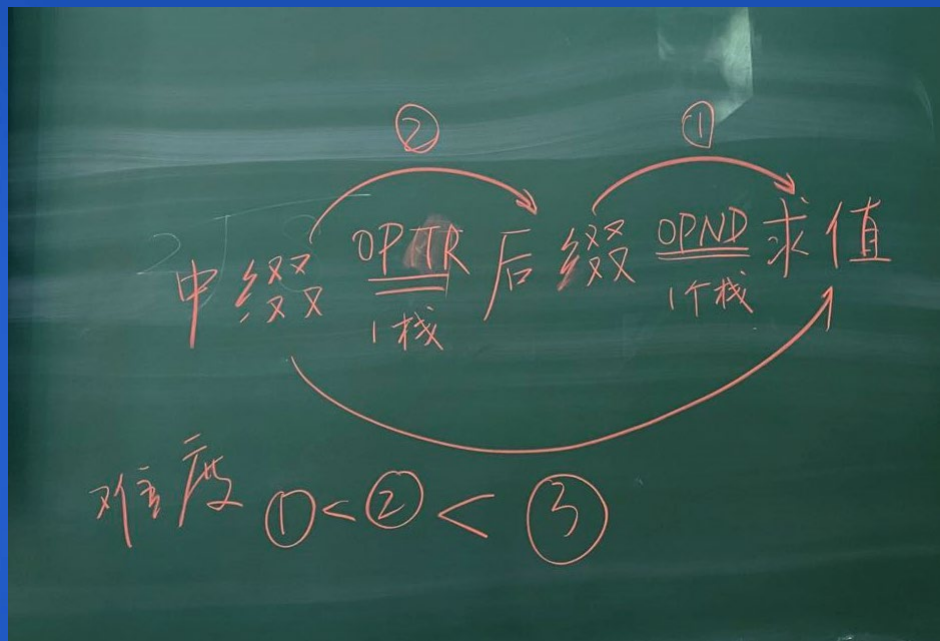 ② ①
中缀 OPTR 后缀 OPND 求值
1栈 1个栈
难度 ①<②<③